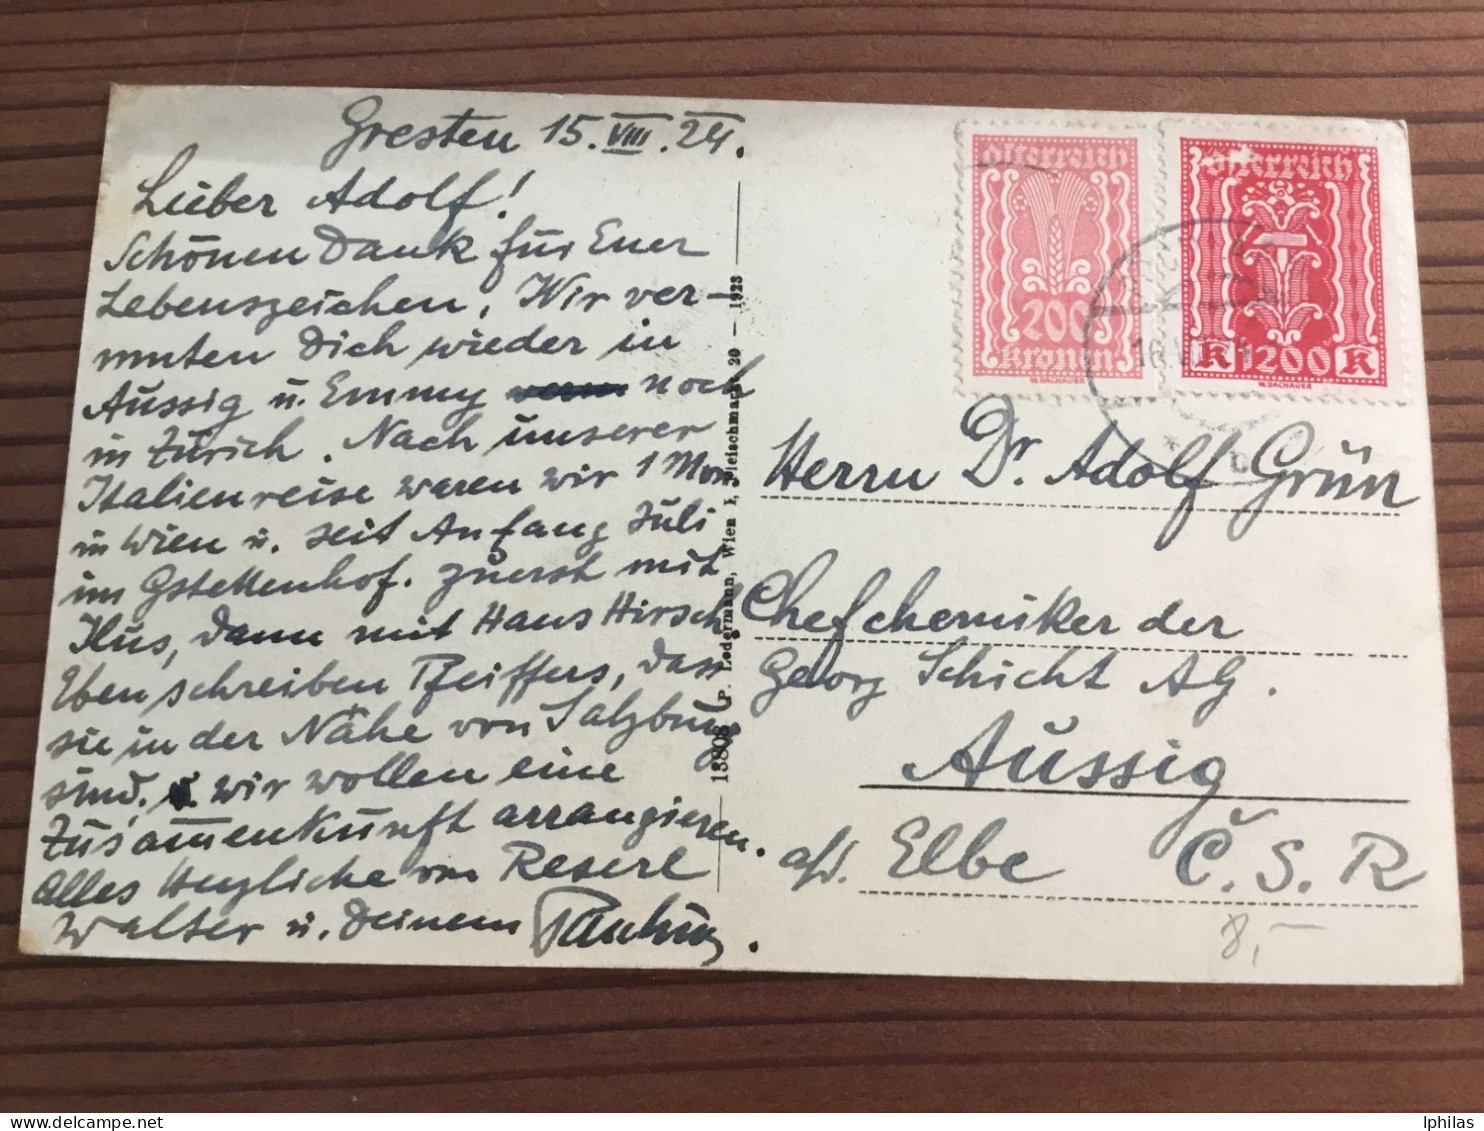 Gresten 15. VIII. 24.
Lieber Adolf!
Schönen Dank für Euer
Lebenszeichen. Wir ver-
muten Dich wieder in
Aussig u. Emmy noch
in Zürich. Nach unserer
Italienreise waren wir 1 Mon
in Wien u. seit Anfang Juli
im Gstettenhof. Zuerst mit
Ilus, dann mit Hans Hirsch
Eben schreiben Pfeiffers, dass
sie in der Nähe von Salzburg
sind. wir wollen eine
Zusammenkunft arrangieren.
Alles Herzliche von Reserl
Walter u. Deinem
13808 P. Ledermann, Wien I, Fleischmarkt 20 — 1923
Österreich
200
Kronen
W. DACHAUER
Österreich
K 1200 K
W. DACHAUER
Herrn Dr. Adolf Grün
Chefchemiker der
Georg Schicht AG.
Aussig
a/d. Elbe Č.S.R
8,-
lphilas